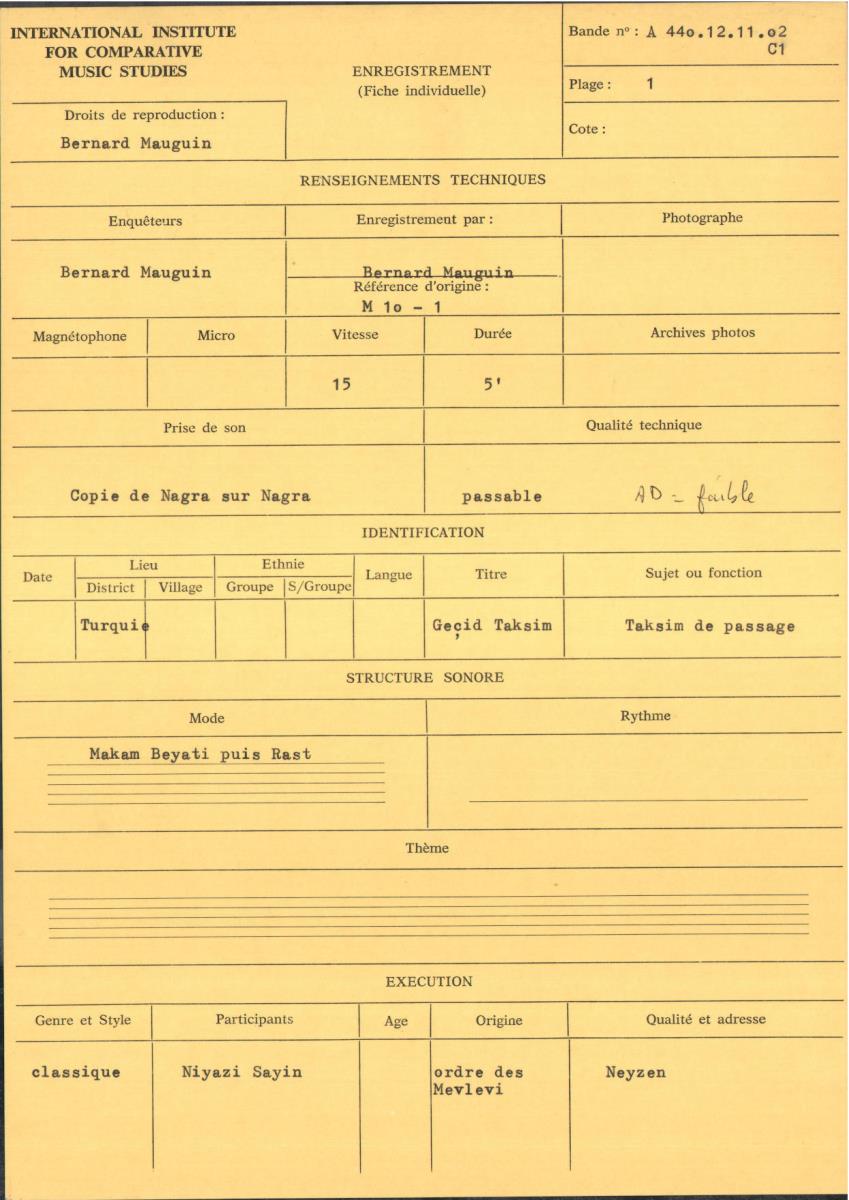 INTERNATIONAL INSTITUTE
FOR COMPARATIVE
MUSIC STUDIES
Droits de reproduction :
Bernard Mauguin
ENREGISTREMENT
(Fiche individuelle)
Bande nº : A 44o.12.11.o2
C1
Plage : 1
Cote :
RENSEIGNEMENTS TECHNIQUES
Enquêteurs
Enregistrement par :
Photographe
Bernard Mauguin
Bernard Mauguin
Référence d'origine :
M 1o - 1
Magnétophone
Micro
Vitesse
Durée
Archives photos
15
5'
Prise de son
Qualité technique
Copie de Nagra sur Nagra
passable
AD = faible
IDENTIFICATION
Date
Lieu
Ethnie
Langue
Titre
Sujet ou fonction
District
Village
Groupe
S/Groupe
Turquie
Geçid Taksim
Taksim de passage
STRUCTURE SONORE
Mode
Rythme
Makam Beyati puis Rast
Thème
EXECUTION
Genre et Style
Participants
Age
Origine
Qualité et adresse
classique
Niyazi Sayin
ordre des
Mevlevi
Neyzen